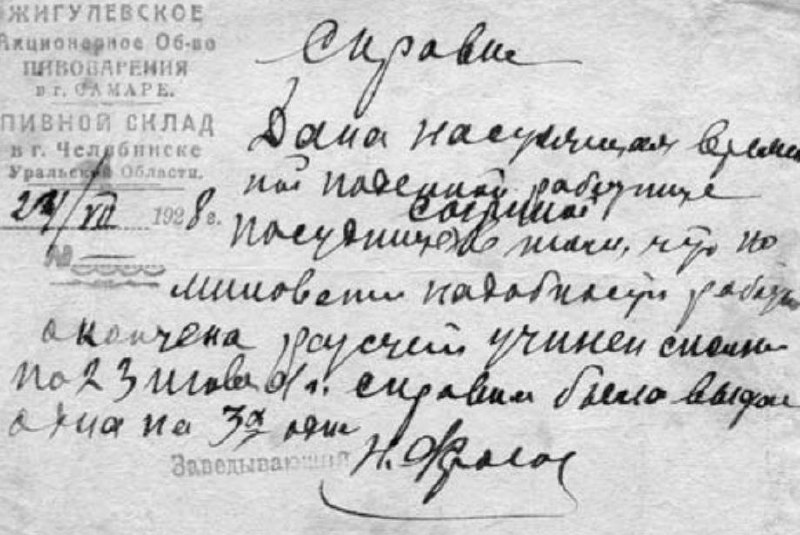 ЖИГУЛЕВСКОЕ
Акционерное Об-во
ПИВОВАРЕНИЯ
в г. САМАРЕ.
ПИВНОЙ СКЛАД
в г. Челябинске
Уральской Области.
24/VII 1928 г.
№
Справка
Дана настоящая времен
ной поденной работнице
посуднице в том, что по
миновении надобности работа
окончена рассчет учинен
по 23 июля справка была выдана
одна на 3х
Заведывающий Н.